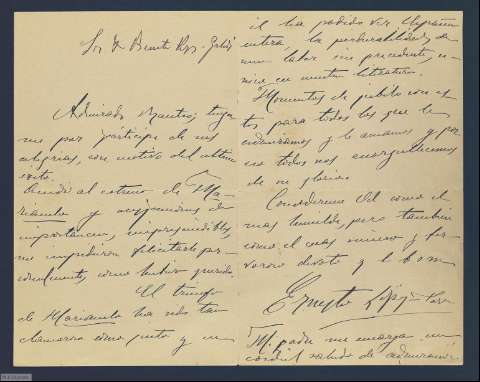 Sr. D. Benito Pz. Galdós
Admirado Maestro; tenga
me por partícipe de sus
alegrías, con motivo del último
éxito.
Acudí al estreno de Ma-
rianela y ocupaciones de
importancia, imprescindibles,
me impidieron felicitarle per-
sonalmente, como hubiera querido.
El triunfo
de Marianela ha sido tan
clamoroso como justo y en
él ha podido ver, España
entera, la perdurabilidad de
una labor sin precedente, ú-
nica en nuestra literatura.
Momentos de júbilo son es-
tos para todos los que le
admiramos y le amamos y por
eso todos nos enorgullecemos
de su gloria.
Considéreme Vd. como el
mas humilde, pero también
como el mas sincero y fer-
voroso devoto y l b s m
Ernesto López
Mi padre me encarga un
cordial saludo de admiración